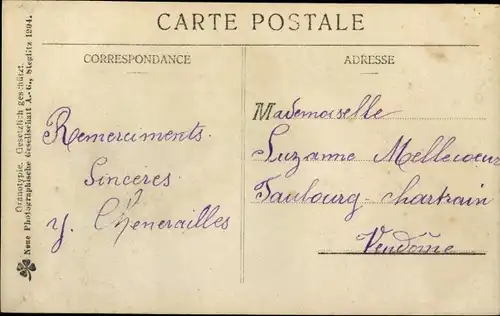 CARTE POSTALE
CORRESPONDANCE
ADRESSE
Remerciments
Sincères
Y. Chenerailles
Mademoiselle
Suzanne Mellecoeur
Faubourg-chartrain
Vendôme
Oranotypie. Gesetzlich geschützt.
Neue Photographische Gesellschaft A.-G., Steglitz 1904.